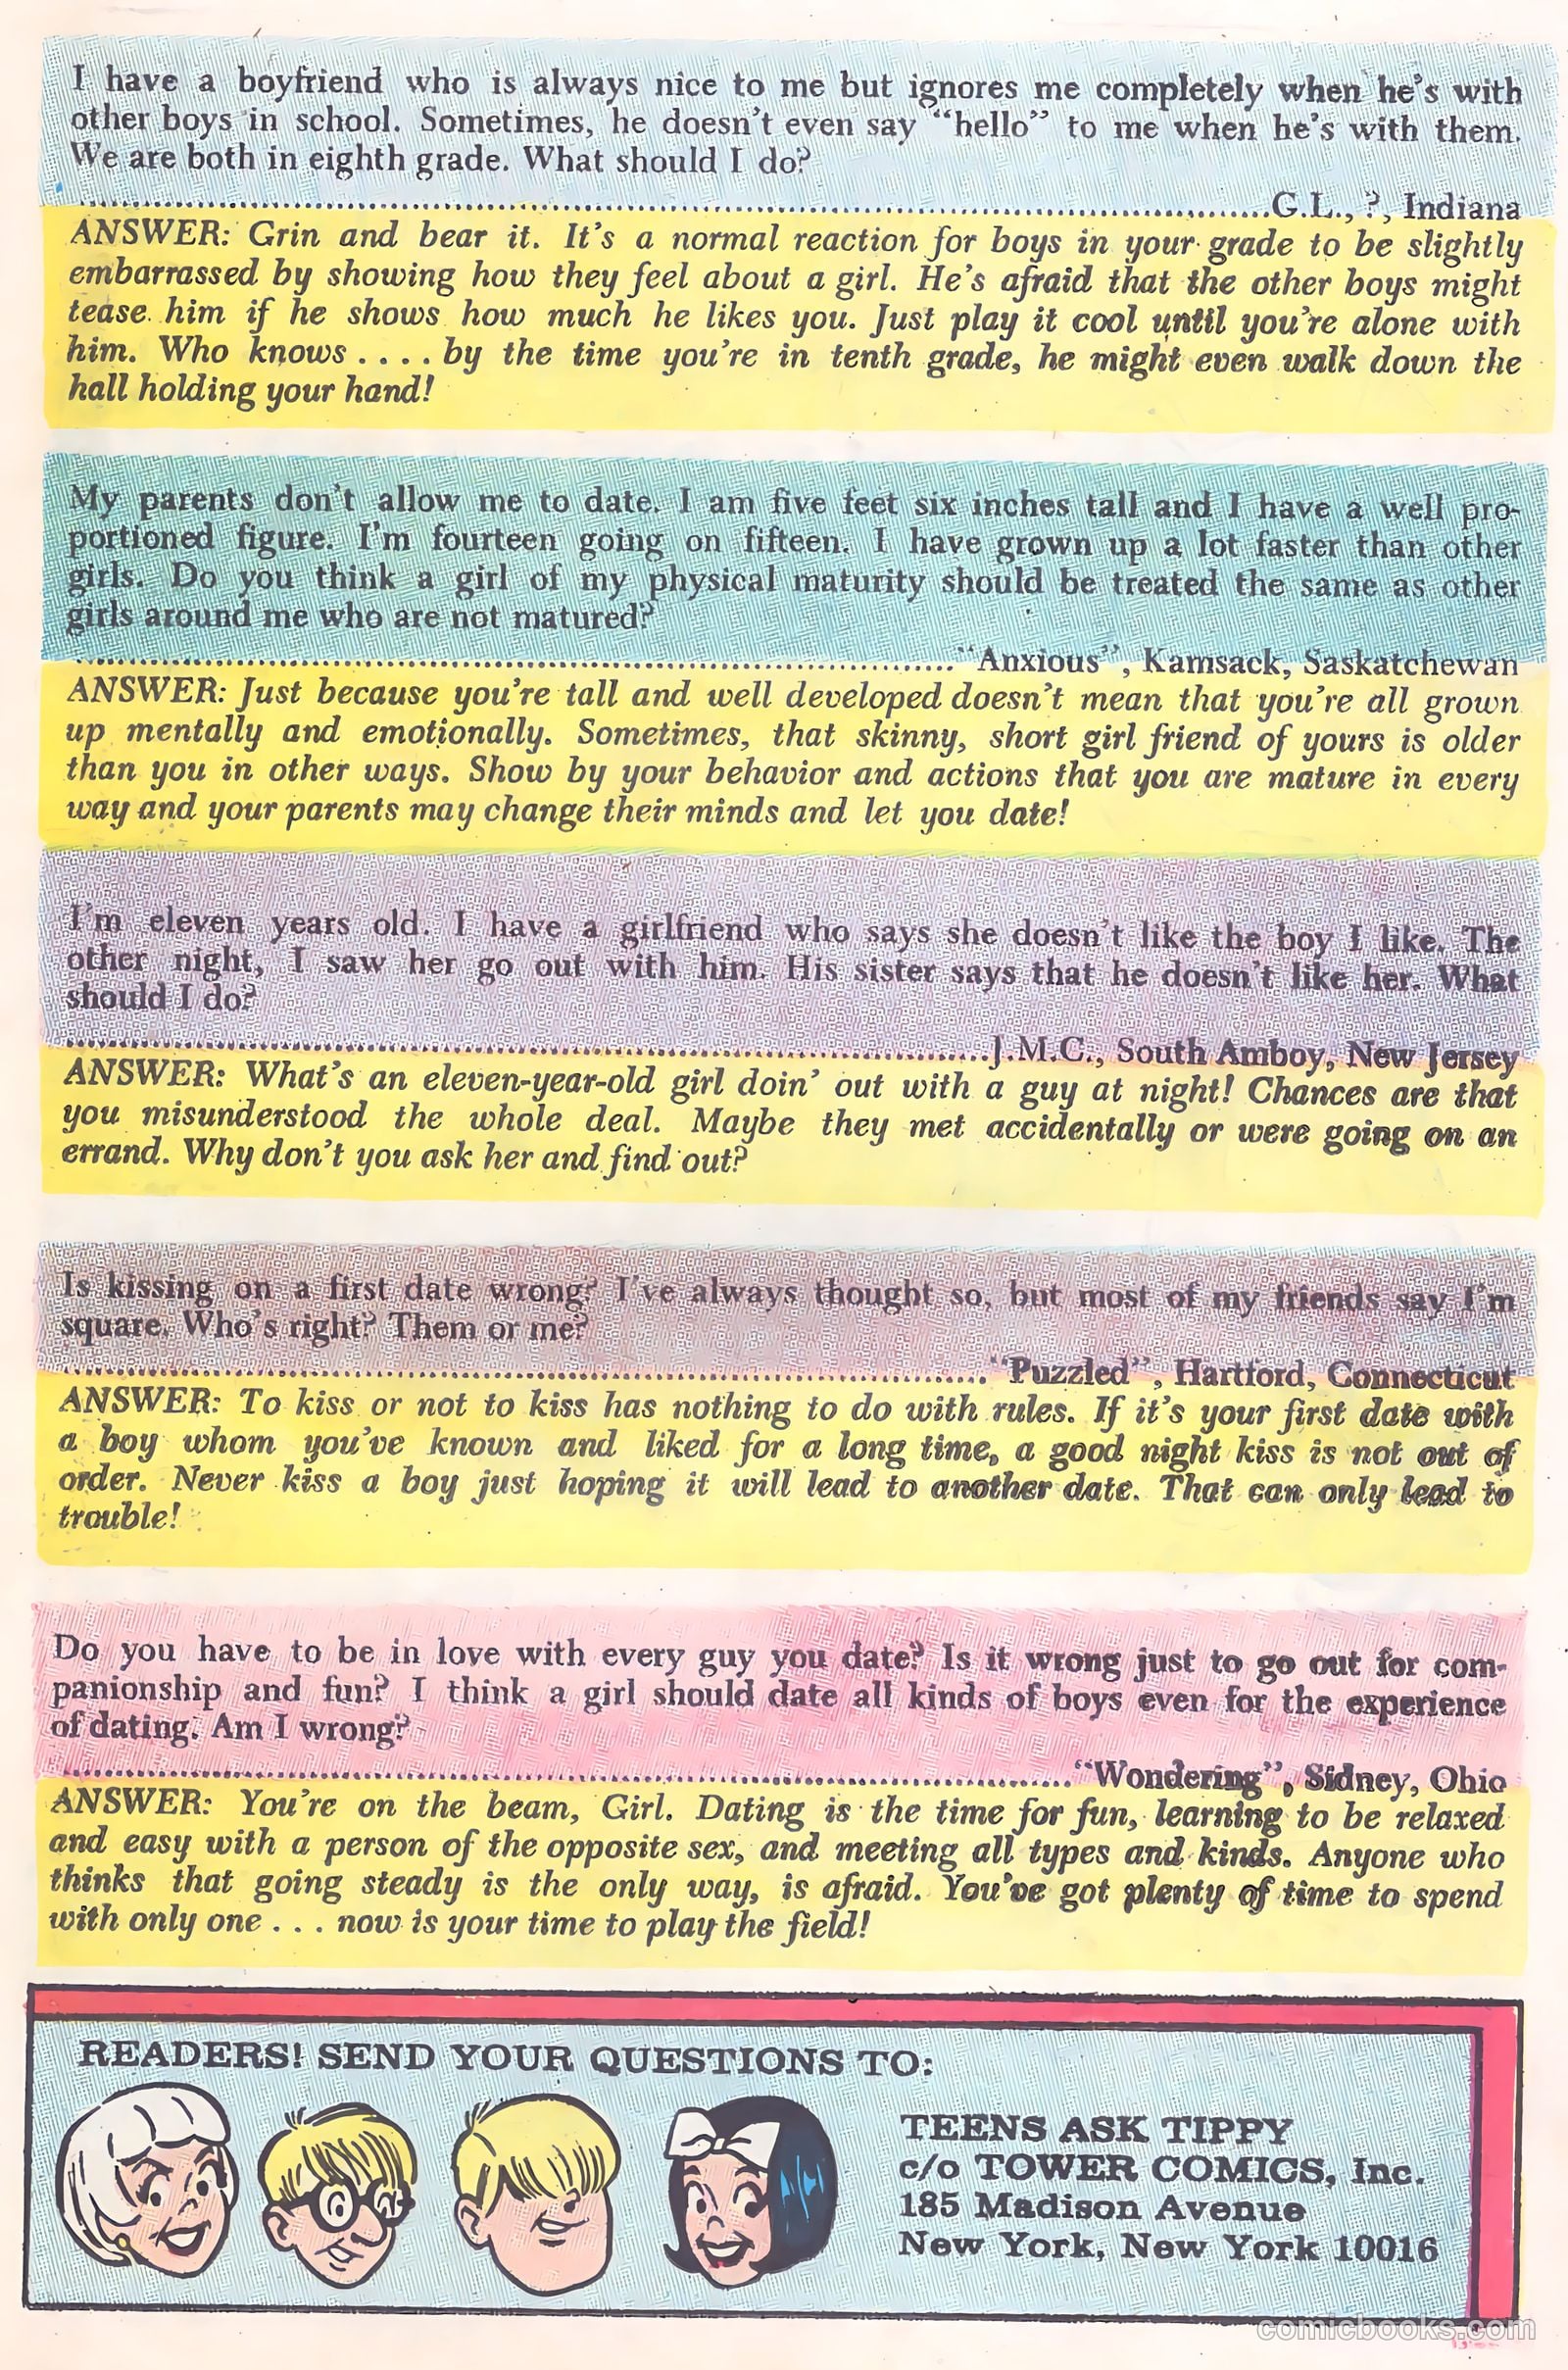 I have a boyfriend who is always nice to me but ignores me completely when he's with
other boys in school. Sometimes, he doesn't even say "hello" to me when he's with them.
We are both in eighth grade. What should I do?
........G.L., ?, Indiana
ANSWER: Grin and bear it. It's a normal reaction for boys in your grade to be slightly
embarrassed by showing how they feel about a girl. He's afraid that the other boys might
tease him if he shows how much he likes you. Just play it cool until you're alone with
him. Who knows . . . . by the time you're in tenth grade, he might even walk down the
hall holding your hand!
My parents don't allow me to date. I am five feet six inches tall and I have a well pro-
portioned figure. I'm fourteen going on fifteen. I have grown up a lot faster than other
girls. Do you think a girl of my physical maturity should be treated the same as other
girls around me who are not matured?
........"Anxious", Kamsack, Saskatchewan
ANSWER: Just because you're tall and well developed doesn't mean that you're all grown
up mentally and emotionally. Sometimes, that skinny, short girl friend of yours is older
than you in other ways. Show by your behavior and actions that you are mature in every
way and your parents may change their minds and let you date!
I'm eleven years old. I have a girlfriend who says she doesn't like the boy I like. The
other night, I saw her go out with him. His sister says that he doesn't like her. What
should I do?
........J.M.C., South Amboy, New Jersey
ANSWER: What's an eleven-year-old girl doin' out with a guy at night! Chances are that
you misunderstood the whole deal. Maybe they met accidentally or were going on an
errand. Why don't you ask her and find out?
Is kissing on a first date wrong? I've always thought so, but most of my friends say I'm
square. Who's right? Them or me?
........"Puzzled", Hartford, Connecticut
ANSWER: To kiss or not to kiss has nothing to do with rules. If it's your first date with
a boy whom you've known and liked for a long time, a good night kiss is not out of
order. Never kiss a boy just hoping it will lead to another date. That can only lead to
trouble!
Do you have to be in love with every guy you date? Is it wrong just to go out for com-
panionship and fun? I think a girl should date all kinds of boys even for the experience
of dating. Am I wrong?
........"Wondering", Sidney, Ohio
ANSWER: You're on the beam, Girl. Dating is the time for fun, learning to be relaxed
and easy with a person of the opposite sex, and meeting all types and kinds. Anyone who
thinks that going steady is the only way, is afraid. You've got plenty of time to spend
with only one . . . now is your time to play the field!
READERS! SEND YOUR QUESTIONS TO:
TEENS ASK TIPPY
c/o TOWER COMICS, Inc.
185 Madison Avenue
New York, New York 10016
comicbooks.com